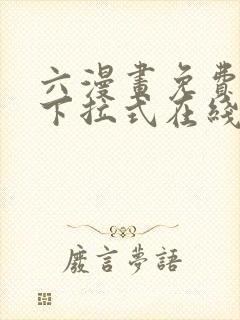 六漫畫免費
下拉式在綫
廢言夢語